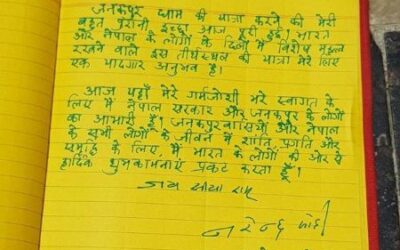 जनकपुर धाम की यात्रा करने की मेरी
बहुत पुरानी इच्छा आज पूरी हुई। भारत
और नेपाल के लोगों के दिलों में विशेष महत्व
रखने वाले इस तीर्थस्थल की यात्रा मेरे लिए
एक यादगार अनुभव है।
आज यहाँ मेरे गर्मजोशी भरे स्वागत के
लिए मैं नेपाल सरकार और जनकपुर के लोगों
का आभारी हूँ। जनकपुरवासियों और नेपाल
के सभी लोगों के जीवन में शांति, प्रगति और
समृद्धि के लिए मैं भारत के लोगों की ओर से
हार्दिक शुभकामनाएं प्रकट करता हूँ।
जय सीया राम
नरेन्द्र मोदी